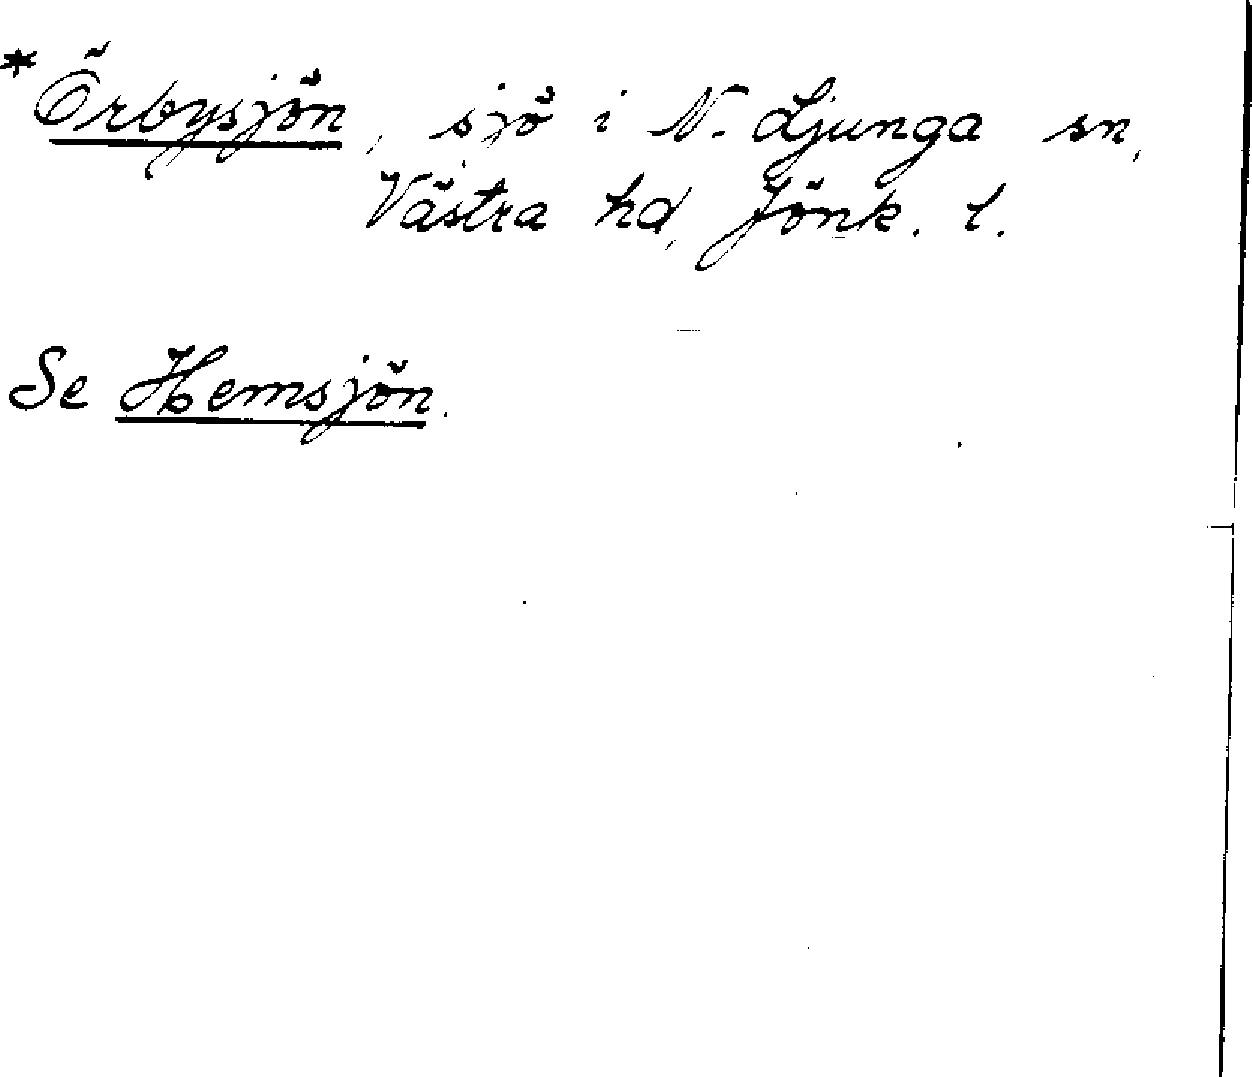 *Örbysjön, sjö i N. Ljunga sn,
Västra hd, Jönk. l.
Se Hemsjön.